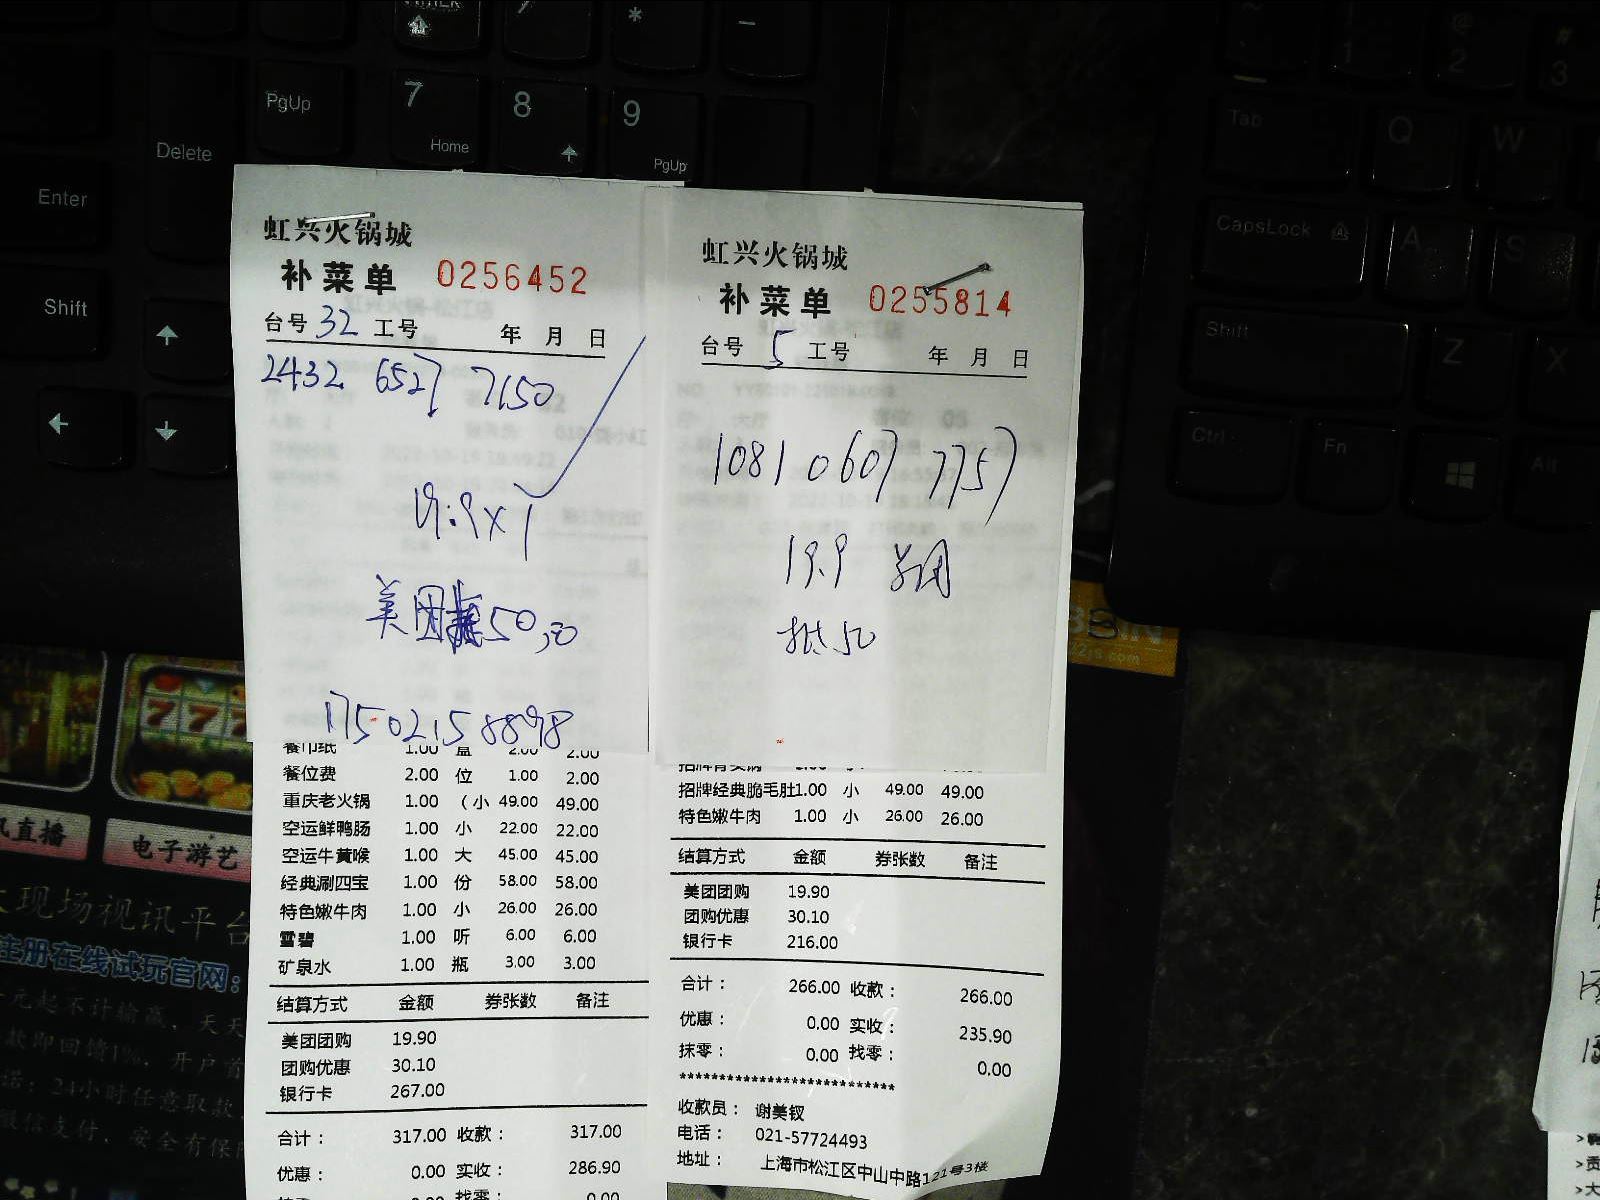 虹兴火锅城
补菜单 0256452
台号 32 工号 年 月 日
2432 6527 7150
19.9x1
美团 50.00
17502158898
餐巾纸 1.00 盒 2.00 2.00
餐位费 2.00 位 1.00 2.00
重庆老火锅 1.00 (小 49.00 49.00
空运鲜鸭肠 1.00 小 22.00 22.00
空运牛黄喉 1.00 大 45.00 45.00
经典涮四宝 1.00 份 58.00 58.00
特色嫩牛肉 1.00 小 26.00 26.00
雪碧 1.00 听 6.00 6.00
矿泉水 1.00 瓶 3.00 3.00
结算方式 金额 券张数 备注
美团团购 19.90
团购优惠 30.10
银行卡 267.00
合计: 317.00 收款: 317.00
优惠: 0.00 实收: 286.90
找零: 0.00
虹兴火锅城
补菜单 0255814
台号 5 工号 年 月 日
1081 0607 7757
19.9 美团
抵50
招牌经典脆毛肚1.00 小 49.00 49.00
特色嫩牛肉 1.00 小 26.00 26.00
结算方式 金额 券张数 备注
美团团购 19.90
团购优惠 30.10
银行卡 216.00
合计: 266.00 收款: 266.00
优惠: 0.00 实收: 235.90
抹零: 0.00 找零: 0.00
**************************
收款员: 谢美钗
电话: 021-57724493
地址: 上海市松江区中山中路121号3楼
PgUp
7 Home
8
9 PgUp
Delete
Enter
Shift
Tab
Q
W
CapsLock
A
S
Shift
Z
X
Ctrl
Fn
Alt
1
2
3
777
直播
电子游艺
现场视讯平台
注册在线试玩官网:
元起不计输赢、天天
款即回馈1%、开户首
诺: 24小时任意取款、
微信支付、安全有保